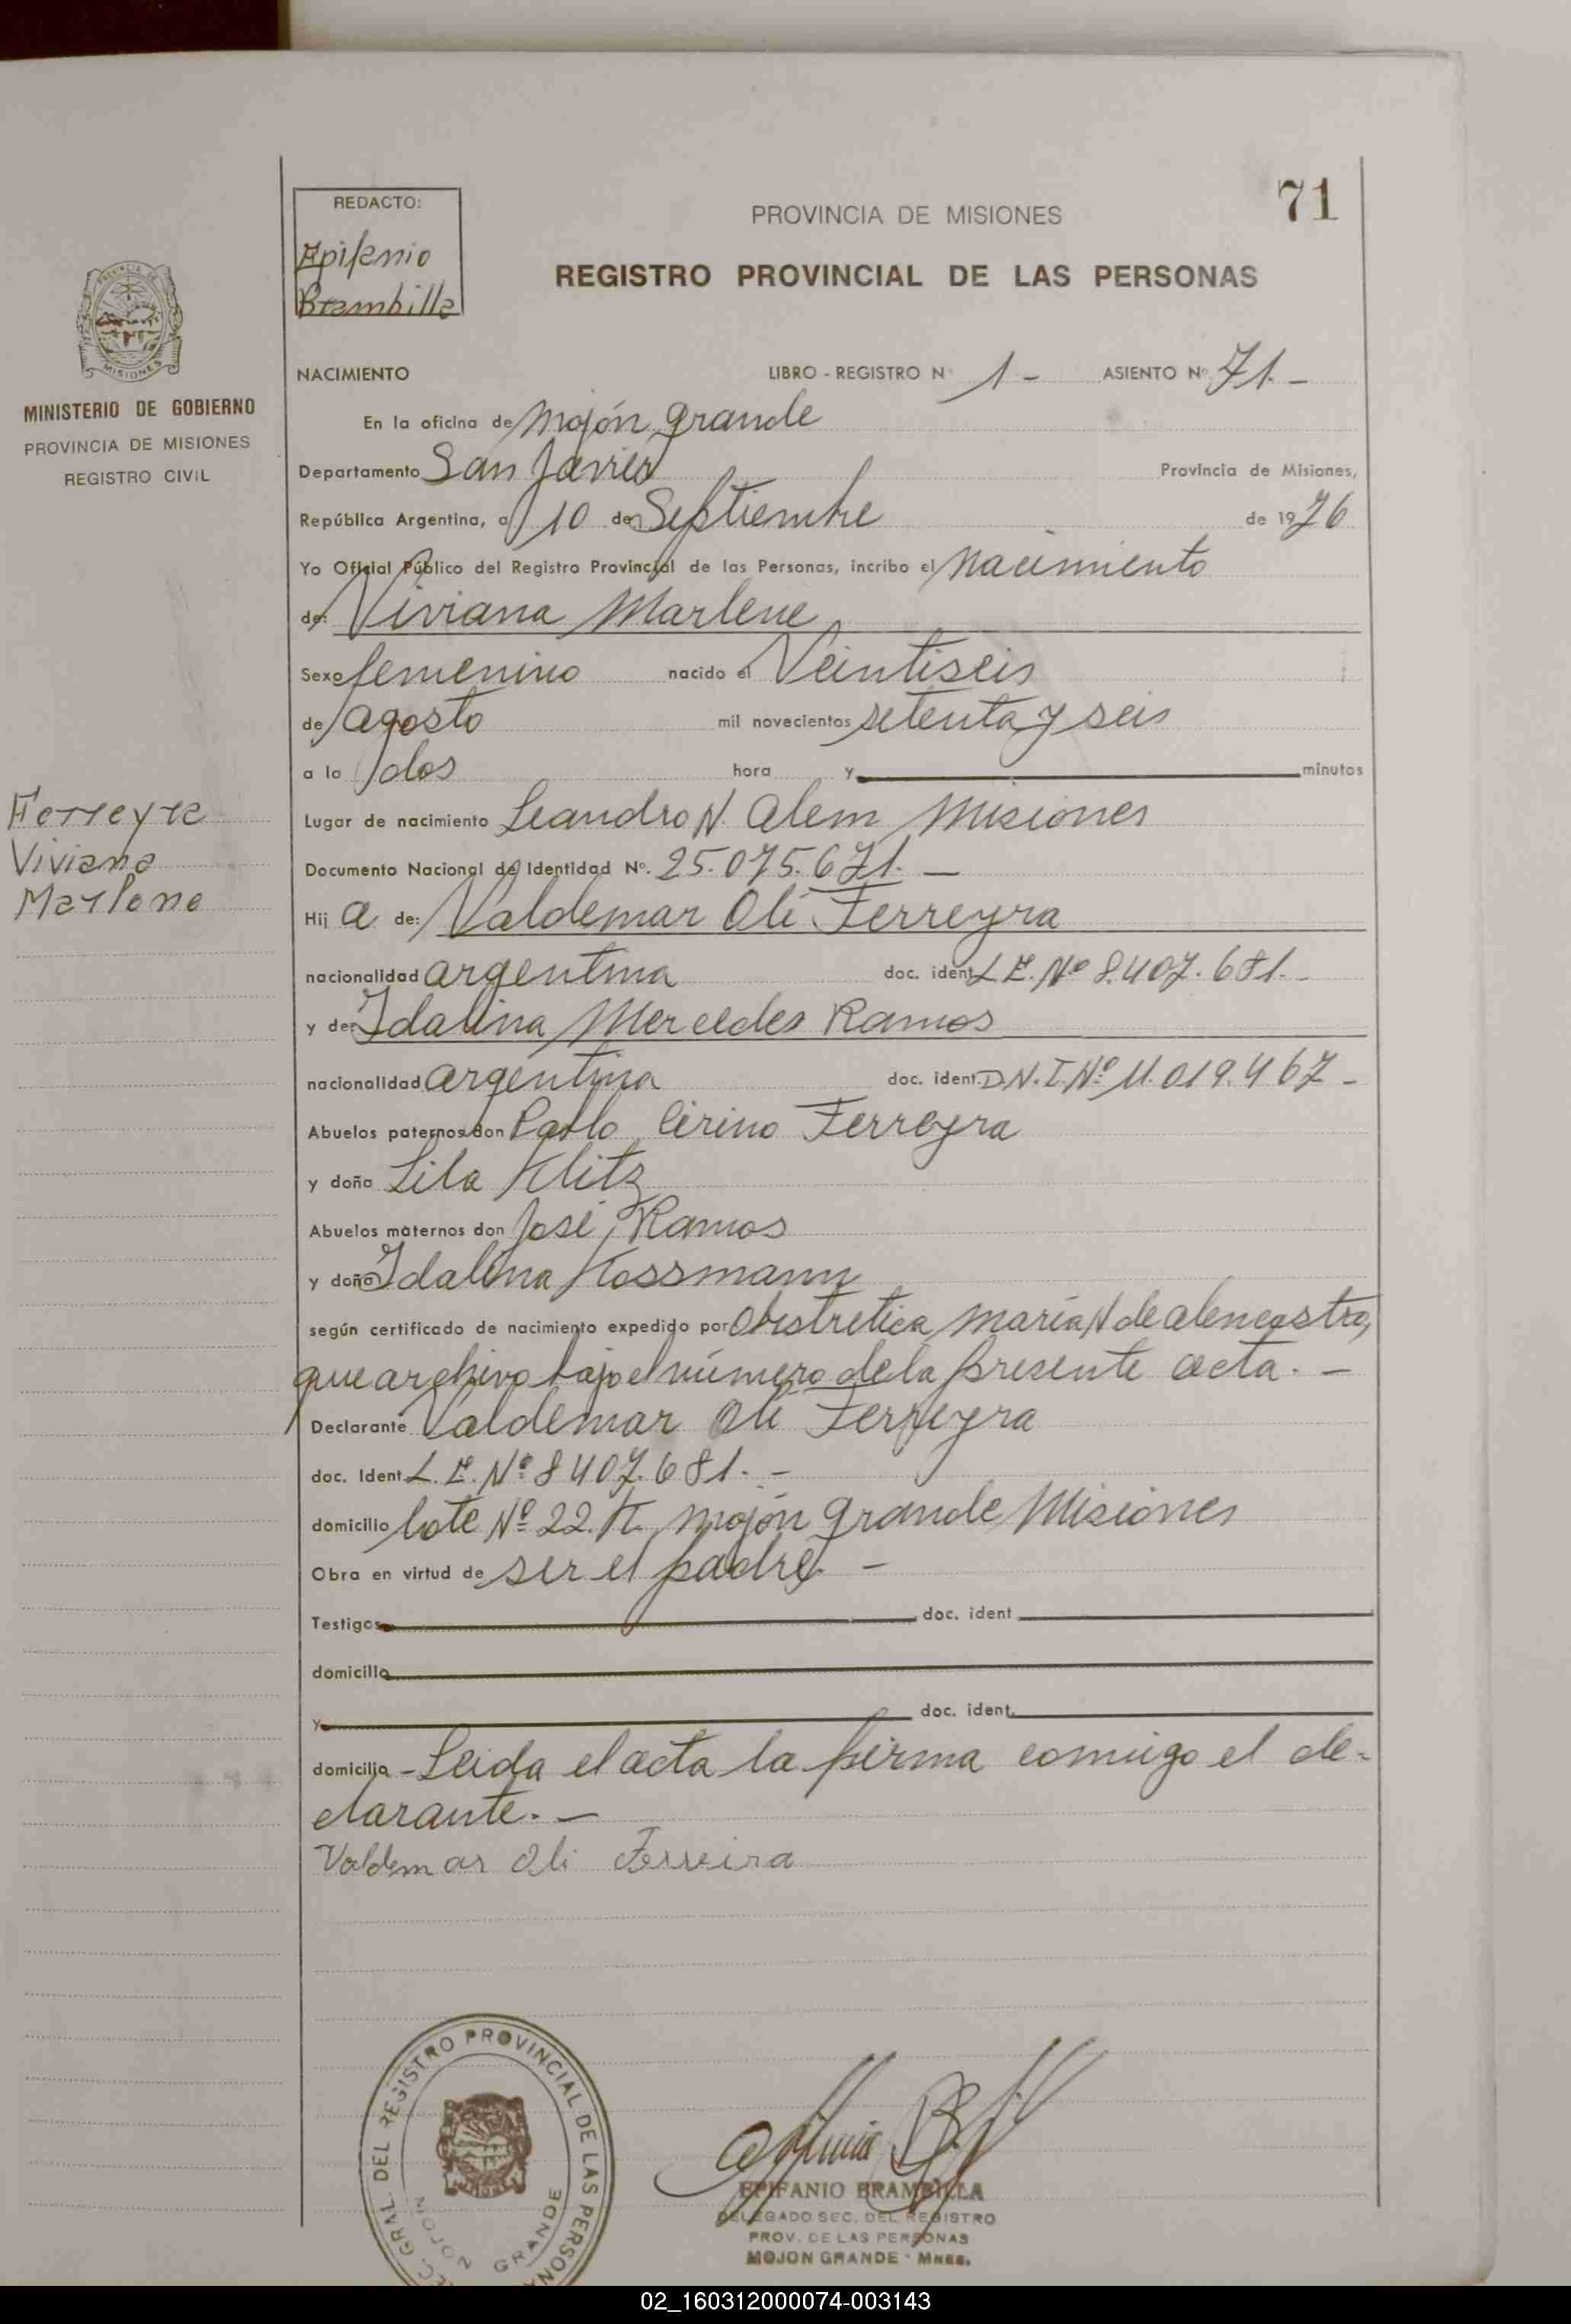 71
REDACTO:
Epifanio
Brambilla
PROVINCIA DE MISIONES
REGISTRO PROVINCIAL DE LAS PERSONAS
MISIONES
MINISTERIO DE GOBIERNO
PROVINCIA DE MISIONES
REGISTRO CIVIL
NACIMIENTO LIBRO - REGISTRO N° 1 - ASIENTO N° 71. -
En la oficina de Mojón Grande
Departamento San Javier Provincia de Misiones,
República Argentina, a 10 de Septiembre de 1976
Yo Oficial Público del Registro Provincial de las Personas, incribo el Nacimiento
de: Viviana Marlene
Sexo femenino nacido el Veintiseis
de agosto mil novecientos setenta y seis
a la dos hora y minutos
Ferreyra
Viviana
Marlene
Lugar de nacimiento Leandro N. Alem Misiones
Documento Nacional de Identidad N°. 25.075.671. -
Hij a de: Valdemar Oli Ferreyra
nacionalidad argentina doc. ident. L E. N° 8.407.681. -
y de: Idalina Mercedes Ramos
nacionalidad argentina doc. ident. D.N.I. N° 11.019.467 -
Abuelos paternos don Pablo Cirino Ferreyra
y doña Lila Klitz
Abuelos maternos don José Ramos
y doña Idalina Kossmann
según certificado de nacimiento expedido por Obstretica María N de Alencastro,
que archivo bajo el número de la presente acta. -
Declarante Valdemar Oli Ferreyra
doc. Ident. L. E. N° 8407.681. -
domicilio lote N° 22. K. Mojón Grande Misiones
Obra en virtud de ser el padre. -
Testigos doc. ident
domicilio
y doc. ident.
domicilio - Leida el acta la firma comigo el de-
clarante. -
Valdemar Oli Ferreira
GRAL. DEL REGISTRO PROVINCIAL DE LAS PERSONA
MOJON GRANDE
EPIFANIO BRAMBILLA
DELEGADO SEC. DEL REGISTRO
PROV. DE LAS PERSONAS
MOJON GRANDE - Mnes.
02_160312000074-003143